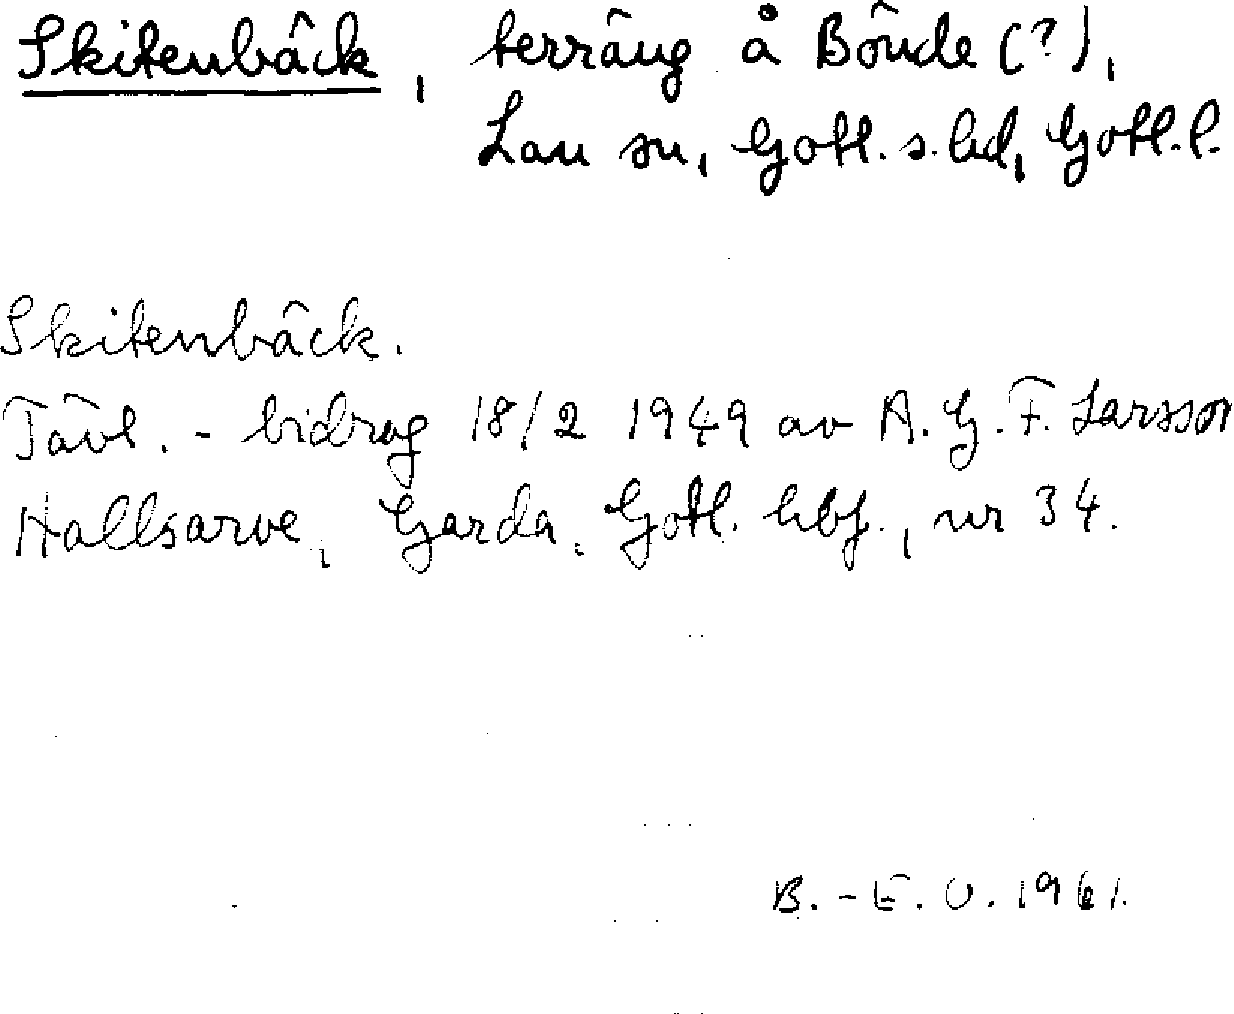 Skitenbäck, terräng å Bönde (?),
Lau sn, Gotl. s. hd, Gotl. l.
Skitenbäck.
Tävl. - bidrag 18/2 1949 av A. G. F. Larsson
Hallsarve, Garda, Gotl. hbf., nr 34.
B.-E. O. 1961.